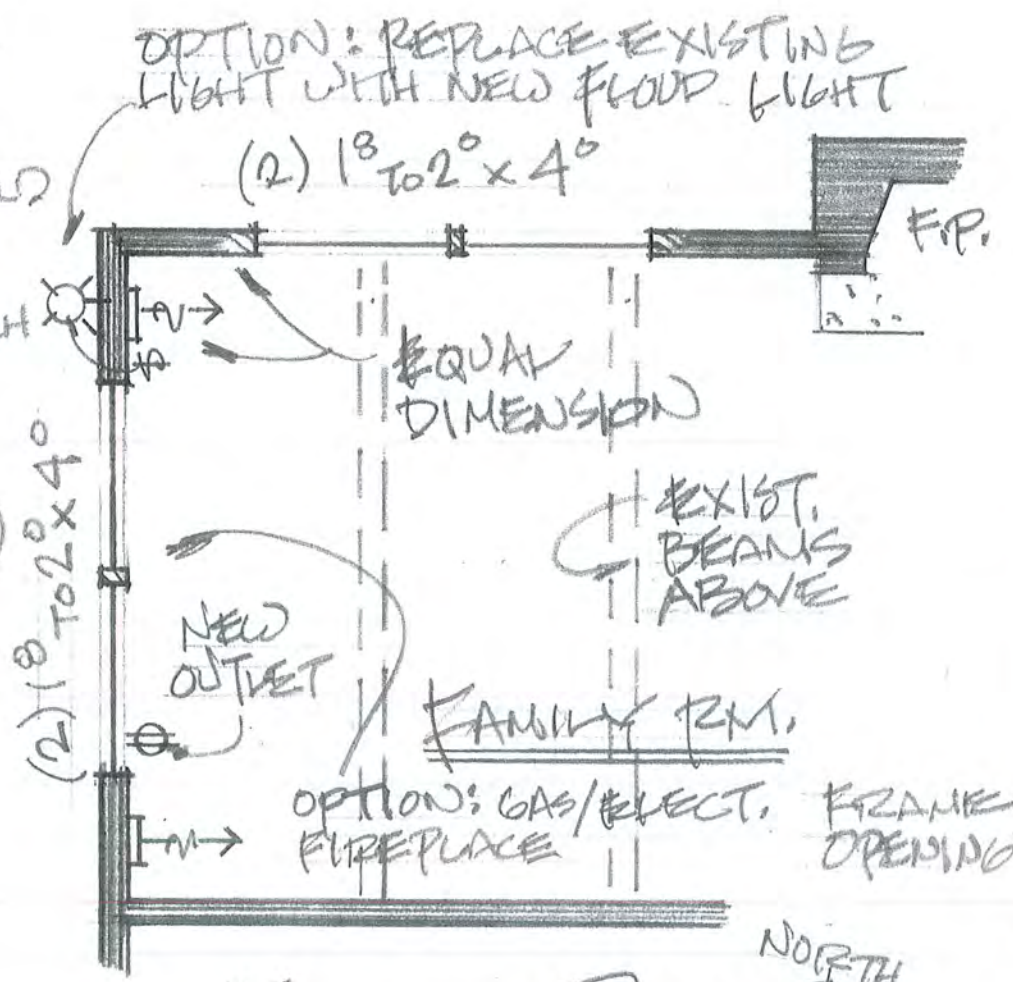 OPTION: REPLACE EXISTING
LIGHT WITH NEW FLOUD LIGHT
(2) 1⁸ TO 2⁰ x 4⁰
F.P.
EQUAL
DIMENSION
(2) 1⁸ TO 2⁰ x 4⁰
EXIST.
BEAMS
ABOVE
NEW
OUTLET
FAMILY RM.
OPTION: GAS/ELECT.
FIREPLACE
FRAME
OPENING
NORTH